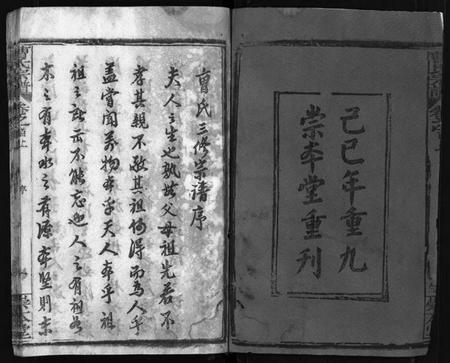 己巳年重九
崇本堂重刊
曹氏三修宗譜序
夫人之生也孰無父母祖先若不
孝其親不敬其祖倘得而為人乎
蓋嘗聞萬物本乎天人本乎祖
祖之說不能忘也人之有祖如
木之有本水之有源本堅則末